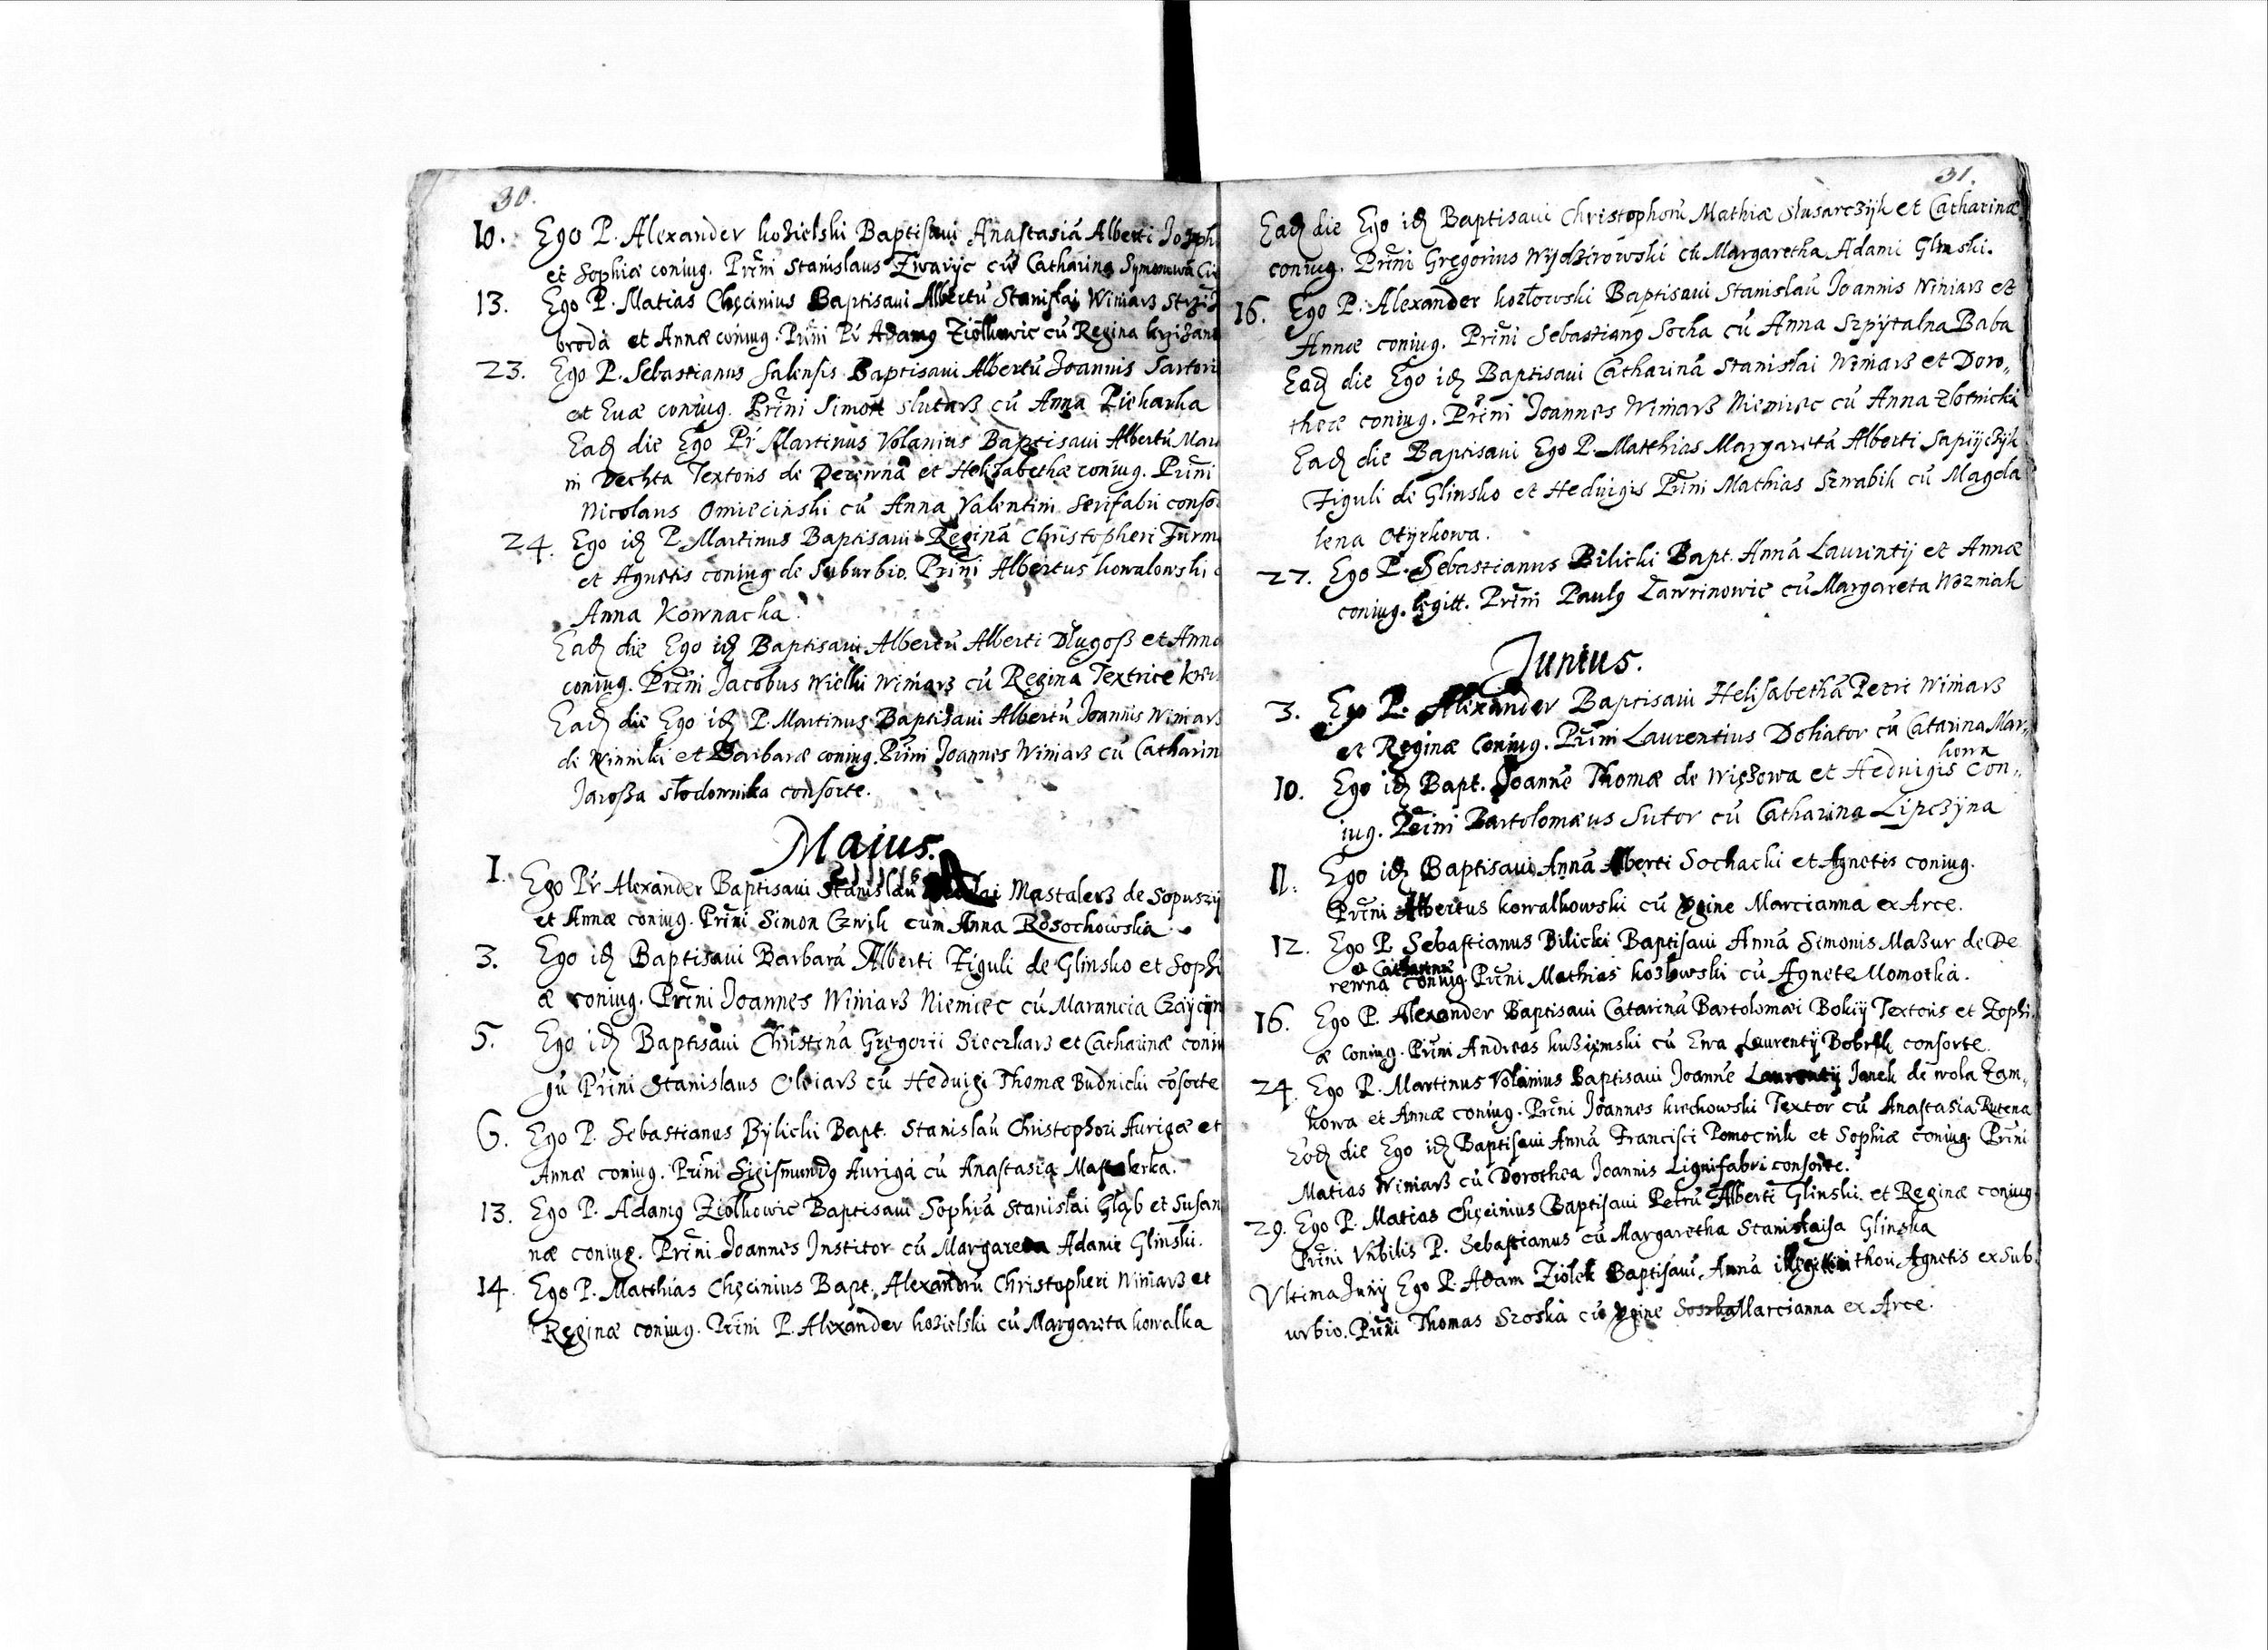 30.
10. Ego P. Alexander kozielski Baptisaui Anastasiā Alberti
et Sophiæ coniug. Prīni Stanislaus Zwaryc cū Catharina
13. Ego P. Matias Chęcinius Baptisaui Albertū Stanislai Winiarß
brodā et Annæ coniug. Prīni Pr Adamus Ziolkowic cū Regina
23. Ego P. Sebastianus Salensis Baptisaui Albertū Joannis Sartori
et Euæ coniug. Prīni Simon slusarß cū Anna Piekarka
Eadē die Ego Pr Martinus Volanius Baptisaui Albertū Mar
ni Dechta Textoris de Derewna et Helisabethæ coniug. Prīni
Nicolaus Omiecinski cū Anna Valentini Serifabri conso
24. Ego idē P. Martinus Baptisaui Reginā Christopheri Furm
et Agnetis coniug de suburbio. Prīni Albertus kowalowski
Anna Kownacka.
Eadē die Ego idē Baptisaui Albertū Alberti Długoß et Anna
coniug. Prīni Jacobus Wielki Winiarß cū Regina Textrice
Eadē die Ego idē P. Martinus Baptisaui Albertū Joannis Winiarß
de Winniki et Barbaræ coniug. Prīni Joannes Winiarß cū Catharin
Jaroßa słodownika consorte.
Maius.
1. Ego Pr Alexander Baptisaui Stanislaū Mastalerz de Sopuszy
et Annæ coniug. Prīni Simon Czwik cum Anna Rosochowska
3. Ego idē Baptisaui Barbarā Alberti Figuli de Glinsko et Sophi
æ coniug. Prīni Joannes Winiarß Niemiec cū Marancia
5. Ego idē Baptisaui Christinā Gregorii Sieczkarß et Catharinæ coniu
gū Prīni Stanislaus Oleiarß cū Heduigi Thomæ Budnicki cōsorte
6. Ego P. Sebastianus Bylicki Bapt. Stanislaū Christophori Aurigæ et
Annæ coniug. Prīni Sigismundus Auriga cū Anastasia Mastalerka.
13. Ego P. Adamus Ziolkowic Baptisaui Sophiā Stanislai Głąb et Susan
næ coniug. Prīni Joannes Institor cū Margareta Adami Glinski.
14. Ego P. Matthias Chęcinius Bapt. Alexandrū Christopheri Winiarß et
Reginæ coniug. Prīni P. Alexander kozielski cū Margareta kowalka
31.
Eadē die Ego idē Baptisaui Christophorū Mathiæ Slusarczyk et Catharinæ
coniug. Prīni Gregorius Wydzirowski cū Margaretha Adami Glinski.
16. Ego P. Alexander kozłowski Baptisaui Stanislaū Joannis Winiarß et
Annæ coniug. Prīni Sebastianus Socha cū Anna Szpytalna Baba
Eadē die Ego idē Baptisaui Catharinā Stanislai Winiarß et Doro„
theæ coniug. Prīni Joannes Winiarß Niemiec cū Anna Złotnicka
Eadē die Baptisaui Ego P. Matthias Margaretā Alberti
Figuli de Glinsko et Heduigis Prīni Mathias Sznabik cū Magda
lena Otyrkowa.
27. Ego P. Sebastianus Bilicki Bapt. Annā Laurentij et Annæ
coniug. legitt. Prīni Paulus Lawrinowic cū Margareta Wozniak
Junius.
3. Ego P. Alexander Baptisaui Helisabethā Petri Winiarß
et Reginæ Coniug. Prīni Laurentius Doliator cū Catarina Mar„
kowa
10. Ego idē Bapt. Joannē Thomæ de Więzowa et Heduigis Con„
iug. Prīni Bartolomæus Sutor cū Catharina Lipczyna
11. Ego idē Baptisaui Annā Alberti Sochacki et Agnetis coniug.
Prīni Albertus kowalkowski cū Vgine Marcianna ex Arce.
12. Ego P. Sebastianus Bilicki Baptisaui Annā Simonis Mazur de De
et Catharinæ
rewna coniug. Prīni Mathias kozłowski cū Agnete Momotka.
16. Ego P. Alexander Baptisaui Catarinā Bartolomæi Bokiy Textoris et Zophi
æ Coniug. Prīni Andreas kuziemski cū Ewa Laurentij Bobrek consorte.
24. Ego P. Martinus Volanius Baptisaui Joannē Laurentij Janek de wola Zam„
kowa et Annæ coniug. Prīni Joannes kiechowski Textor cū Anastasia Rutena
Eodē die Ego idē Baptisaui Annā Francisci Pomocnik et Sophiæ coniug. Prīni
Matias Winiarß cū Dorothea Joannis Lignifabri consorte.
29. Ego P. Matias Chęcinius Baptisaui Petrū Alberti Glinski et Reginæ coniug
Prīni Vnbilis P. Sebastianus cū Margaretha Stanisłaisa Glinska
Vltima Junij Ego P. Adam Ziolek Baptisaui Annā illegittimi thori Agnetis ex Sub.
urbio. Prīni Thomas Szoska cū Vgine Marcianna ex Arce.